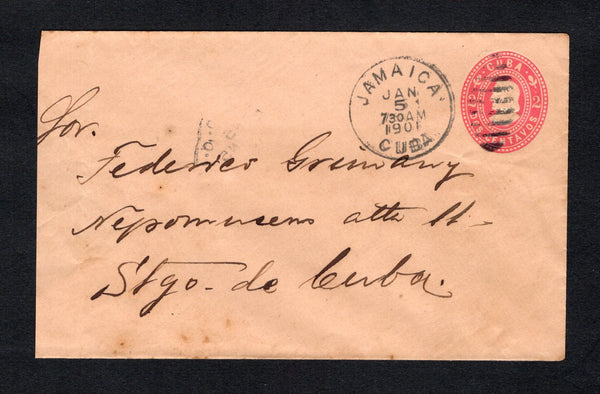 JAMAICA
JAN
5
730AM
1901
CUBA
CUBA
2
Sor.
Federico Grimany
Nepomuceno alta
Stgo. de Cuba.